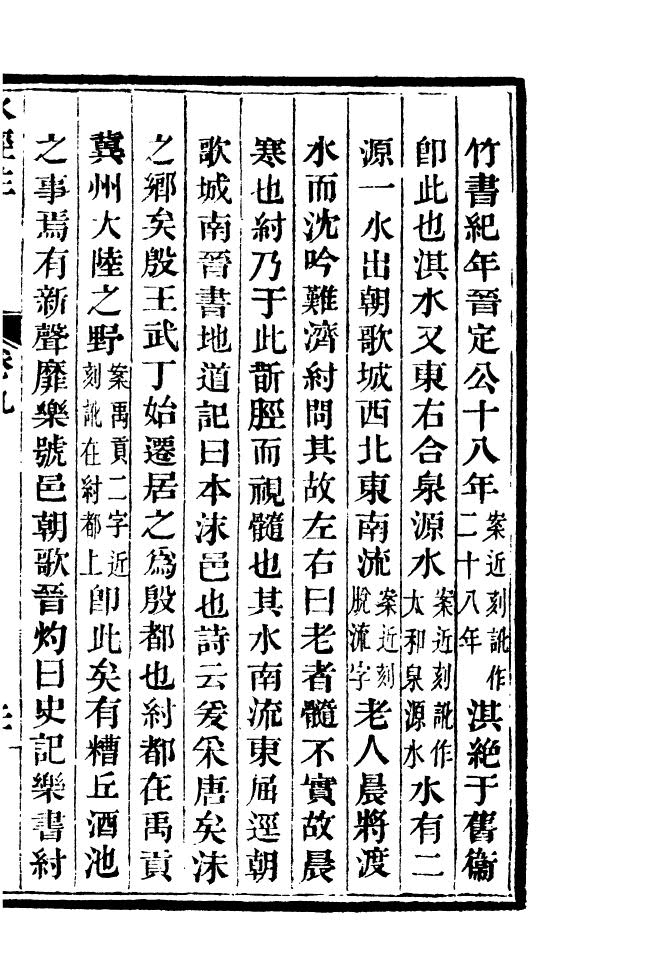 竹書紀年晉定公十八年案近刻訛作二十八年淇絶于舊衞
卽此也淇水又東右合泉源水案近刻訛作太和泉源水水有二
源一水出朝歌城西北東南流案近刻脫流字老人晨將渡
水而沈吟難濟紂問其故左右曰老者髓不實故晨
寒也紂乃于此斮脛而視髓也其水南流東屆逕朝
歌城南晉書地道記曰本沬邑也詩云爰采唐矣沬
之鄉矣殷王武丁始遷居之爲殷都也紂都在禹貢
冀州大陸之野案禹貢二字近刻訛在紂都上卽此矣有糟丘酒池
之事焉有新聲靡樂號邑朝歌晉灼曰史記樂書紂
水經注 卷九